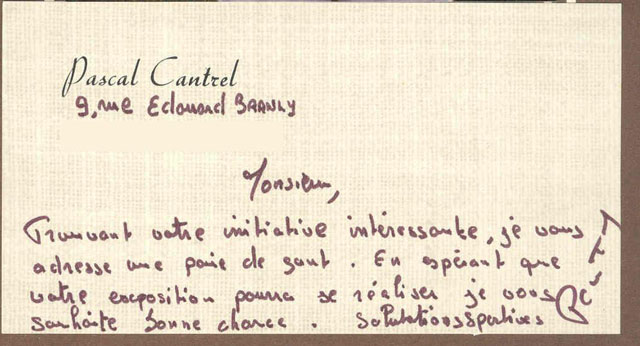 Pascal Cantrel
9, rue Edouard BRANLY
Monsieur,
Trouvant votre initiative intéressante, je vous
adresse une paire de gant. En espérant que
votre exposition pourra se réaliser je vous
souhaite bonne chance. Salutations sportives